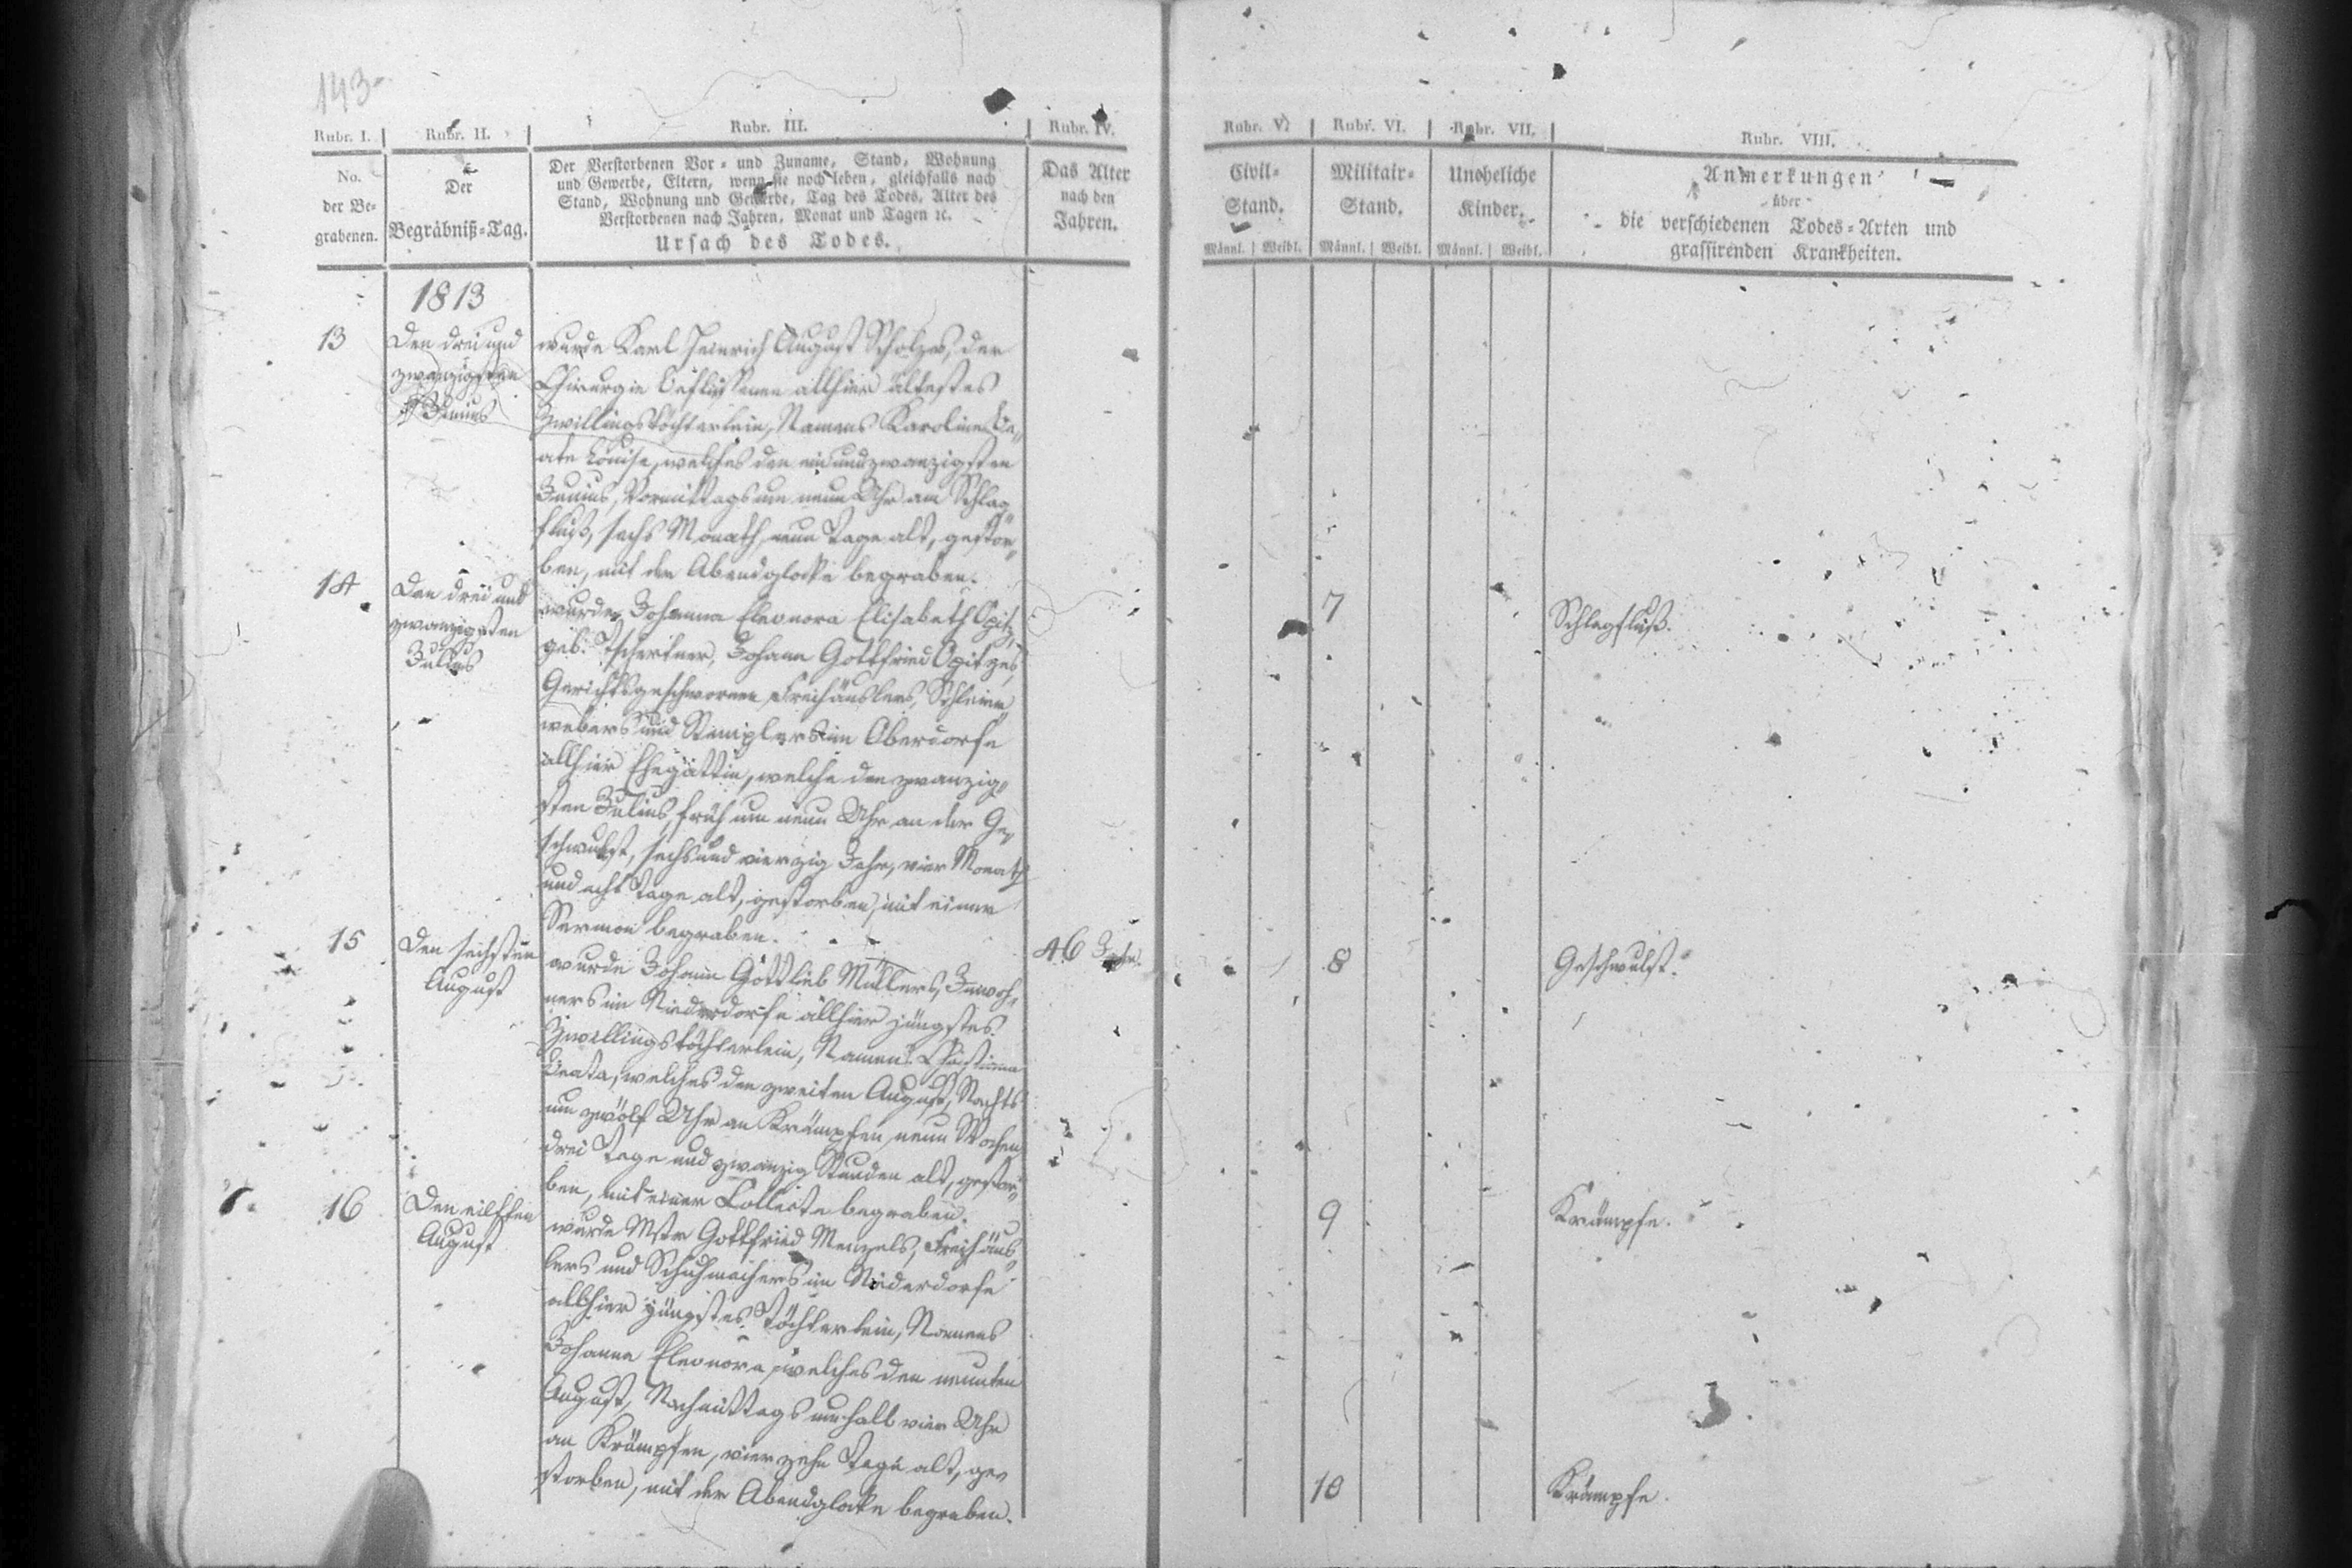 143.
Rubr. I. Rubr. II. Rubr. III. Rubr. IV. Rubr. V. Rubr. VI. Rubr. VII. Rubr. VIII.
No.
der Be-
grabenen.
Der
Begräbniß-Tag.
Der Verstorbenen Vor- und Zuname, Stand, Wohnung
und Gewerbe, Eltern, wenn sie noch leben, gleichfalls nach
Stand, Wohnung und Gewerbe, Tag des Todes, Alter des
Verstorbenen nach Jahren, Monat und Tagen ꝛc.
Ursach des Todes.
Das Alter
nach den
Jahren.
Civil-
Stand.
Männl. Weibl.
Militair-
Stand.
Männl. Weibl.
Uneheliche
Kinder.
Männl. Weibl.
Anmerkungen
über
die verschiedenen Todes-Arten und
grassirenden Krankheiten.
1813
13
Den drei und
zwanzigsten
Junius
wurde Karl Heinrich August Scholzes, der
Chirurgie Beflissenen allhier ältestes
Zwillingstöchterlein, Namens Karoline Be-
ate Louise, welches den ein und zwanzigsten
Junius, Vormittags um neun Uhr am Schlag-
fluß, sechs Monath, neun Tage alt, gestor-
ben, mit der Abendglocke begraben.
7
Schlagfluß.
14
Den drei und
zwanzigsten
Julius
wurde Johanna Eleonora Elisabeth Opitz,
geb. Tschertner, Johann Gottfried Opitzes,
Gerichtsgeschwornen Freihäuslers,
webers und Stemplers im Oberdorfe
allhier Ehegattin, welche den zwanzig-
sten Julius, früh um neun Uhr an der Ge-
schwulst, sechs und vierzig Jahr, vier Monath
und acht Tage alt, gestorben, mit einer
Sermon begraben.
46 Jahr.
8
Geschwulst.
15
Den sechsten
August
wurde Johann Gottlieb Müllers, Inwoh-
ners im Niederdorfe allhier jüngstes
Zwillingstöchterlein, Namens Christiana
Beata, welches den zweiten August, Nachts
um zwölf Uhr an Krämpfen, neun Wochen
drei Tage und zwanzig Stunden alt, gestor-
ben, mit einer Collecte begraben.
9
Krämpfe.
16
Den eilften
August
wurde Mstr Gottfried Menzels, Freihäus-
lers und Schuhmachers im Niederdorfe
allhier jüngstes Töchterlein, Namens
Johanna Eleonora, welches den neunten
August, Nachmittags um halb vier Uhr
an Krämpfen, vierzehn Tage alt, ge-
storben, mit der Abendglocke begraben.
10
Krämpfe.